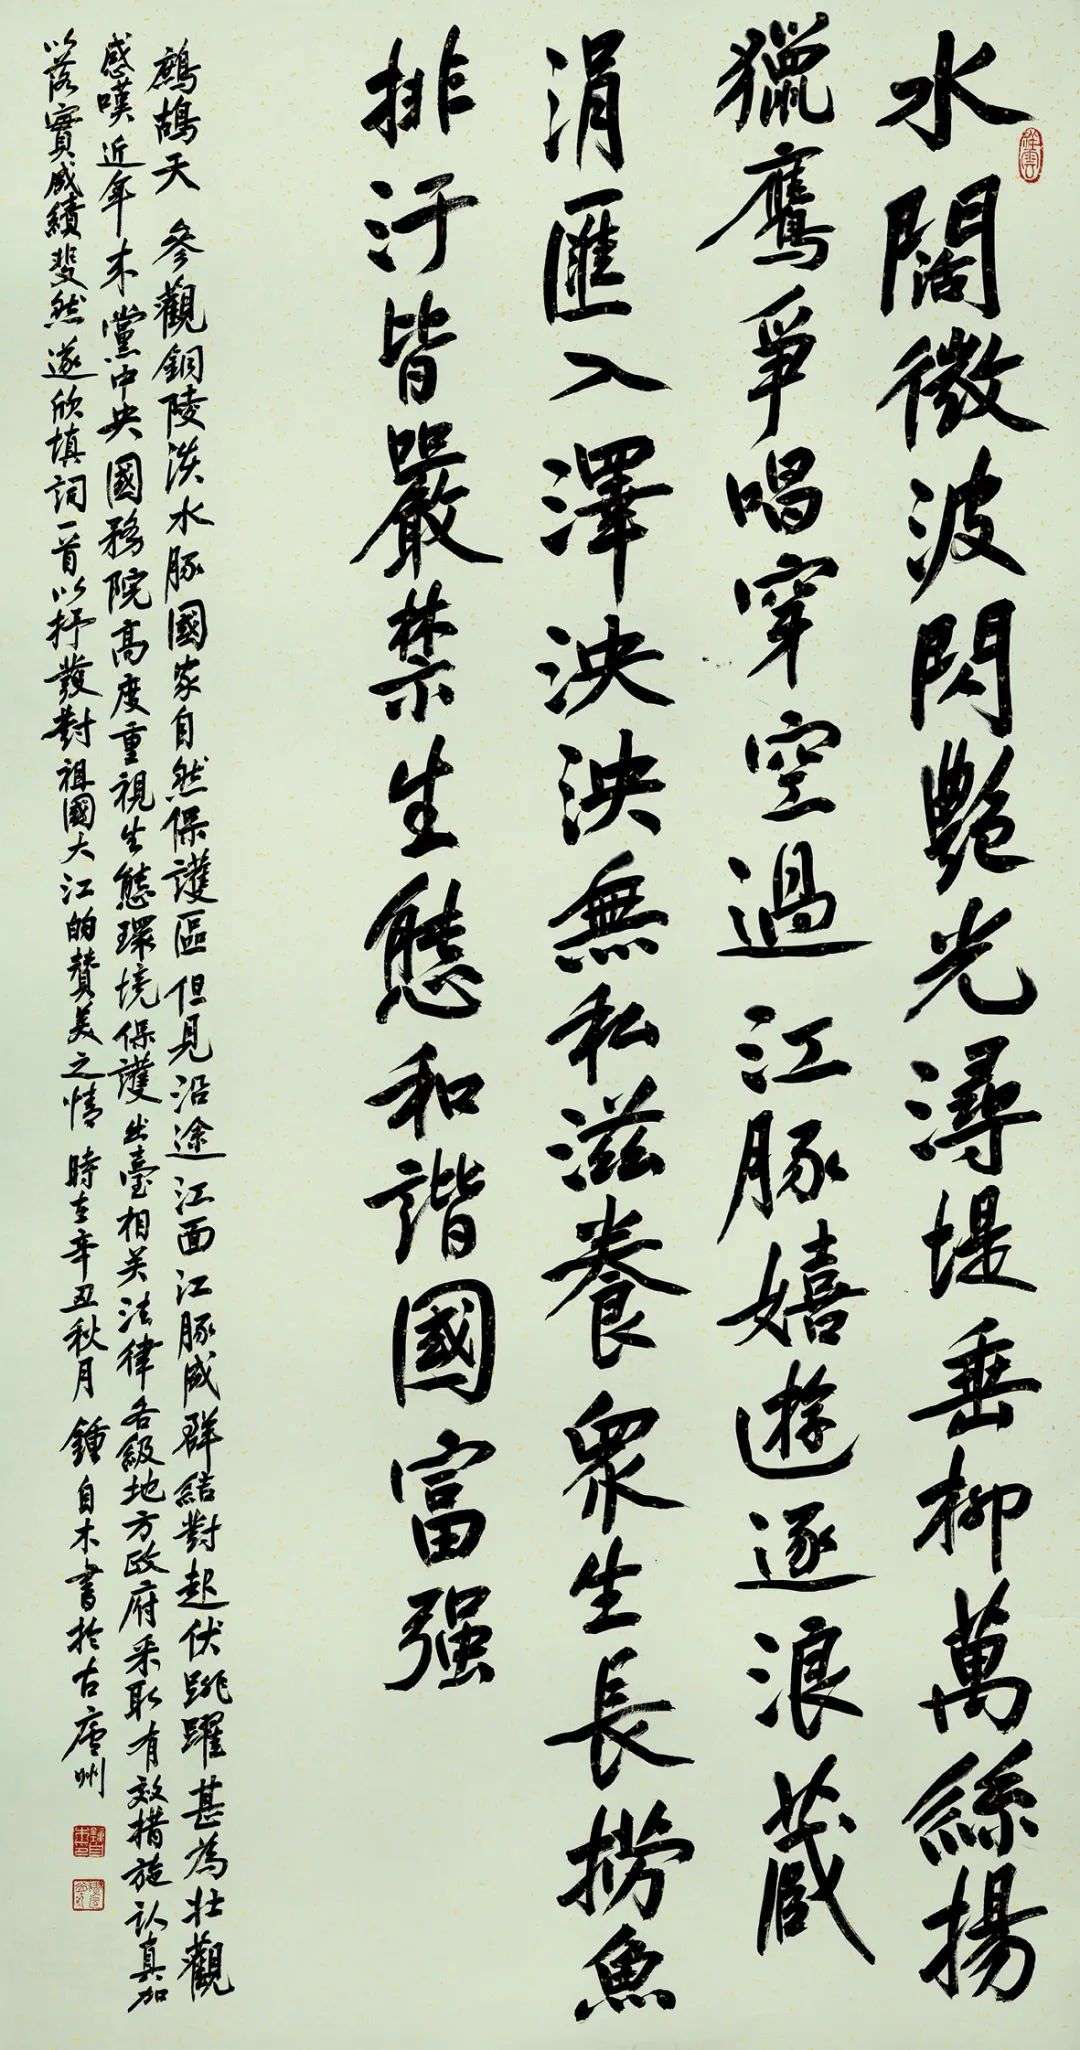 水闊微波閃艷光潯堤垂柳萬絲揚
獵鷹爭唱穿空過江豚嬉遊逐浪藏
涓匯入澤泱泱無私滋養眾生長撈魚
排汙皆嚴禁生態和諧國富强
鷓鴣天 參觀銅陵淡水豚國家自然保護區但見沿途江面江豚成群結對起伏跳躍甚為壯觀
感嘆近年來黨中央國務院高度重視生態環境保護出臺相关法律各級地方政府采取有效措施认真加
以落實成績斐然遂欣填詞一首以抒發對祖國大江的贊美之情 時在辛丑秋月 鍾自木書於古廬州